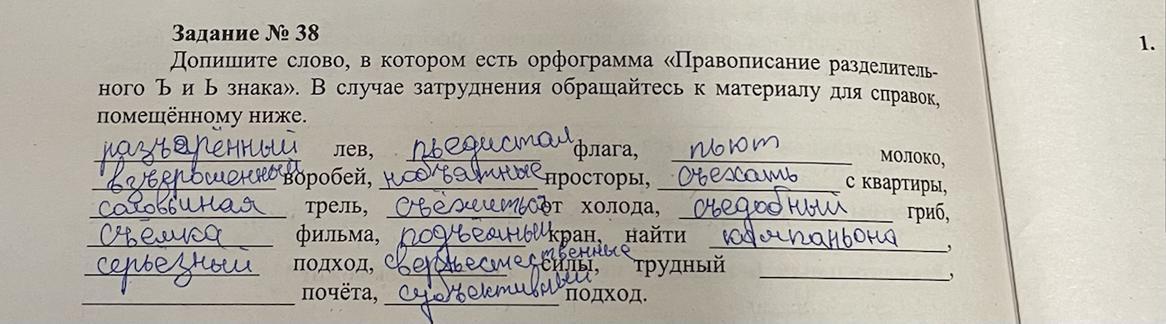 Задание № 38
1.
Допишите слово, в котором есть орфограмма «Правописание разделитель-
ного Ъ и Ь знака». В случае затруднения обращайтесь к материалу для справок,
помещённому ниже.
разъярённый лев, пьедистал флага, пьют молоко,
взъерошенный воробей, необъятные просторы, съехать с квартиры,
соловьиная трель, съёжиться от холода, съедобный гриб,
съёмка фильма, подъёмный кран, найти компаньона,
серьезный подход, сверхъестественные силы, трудный ,
почёта, субъективный подход.